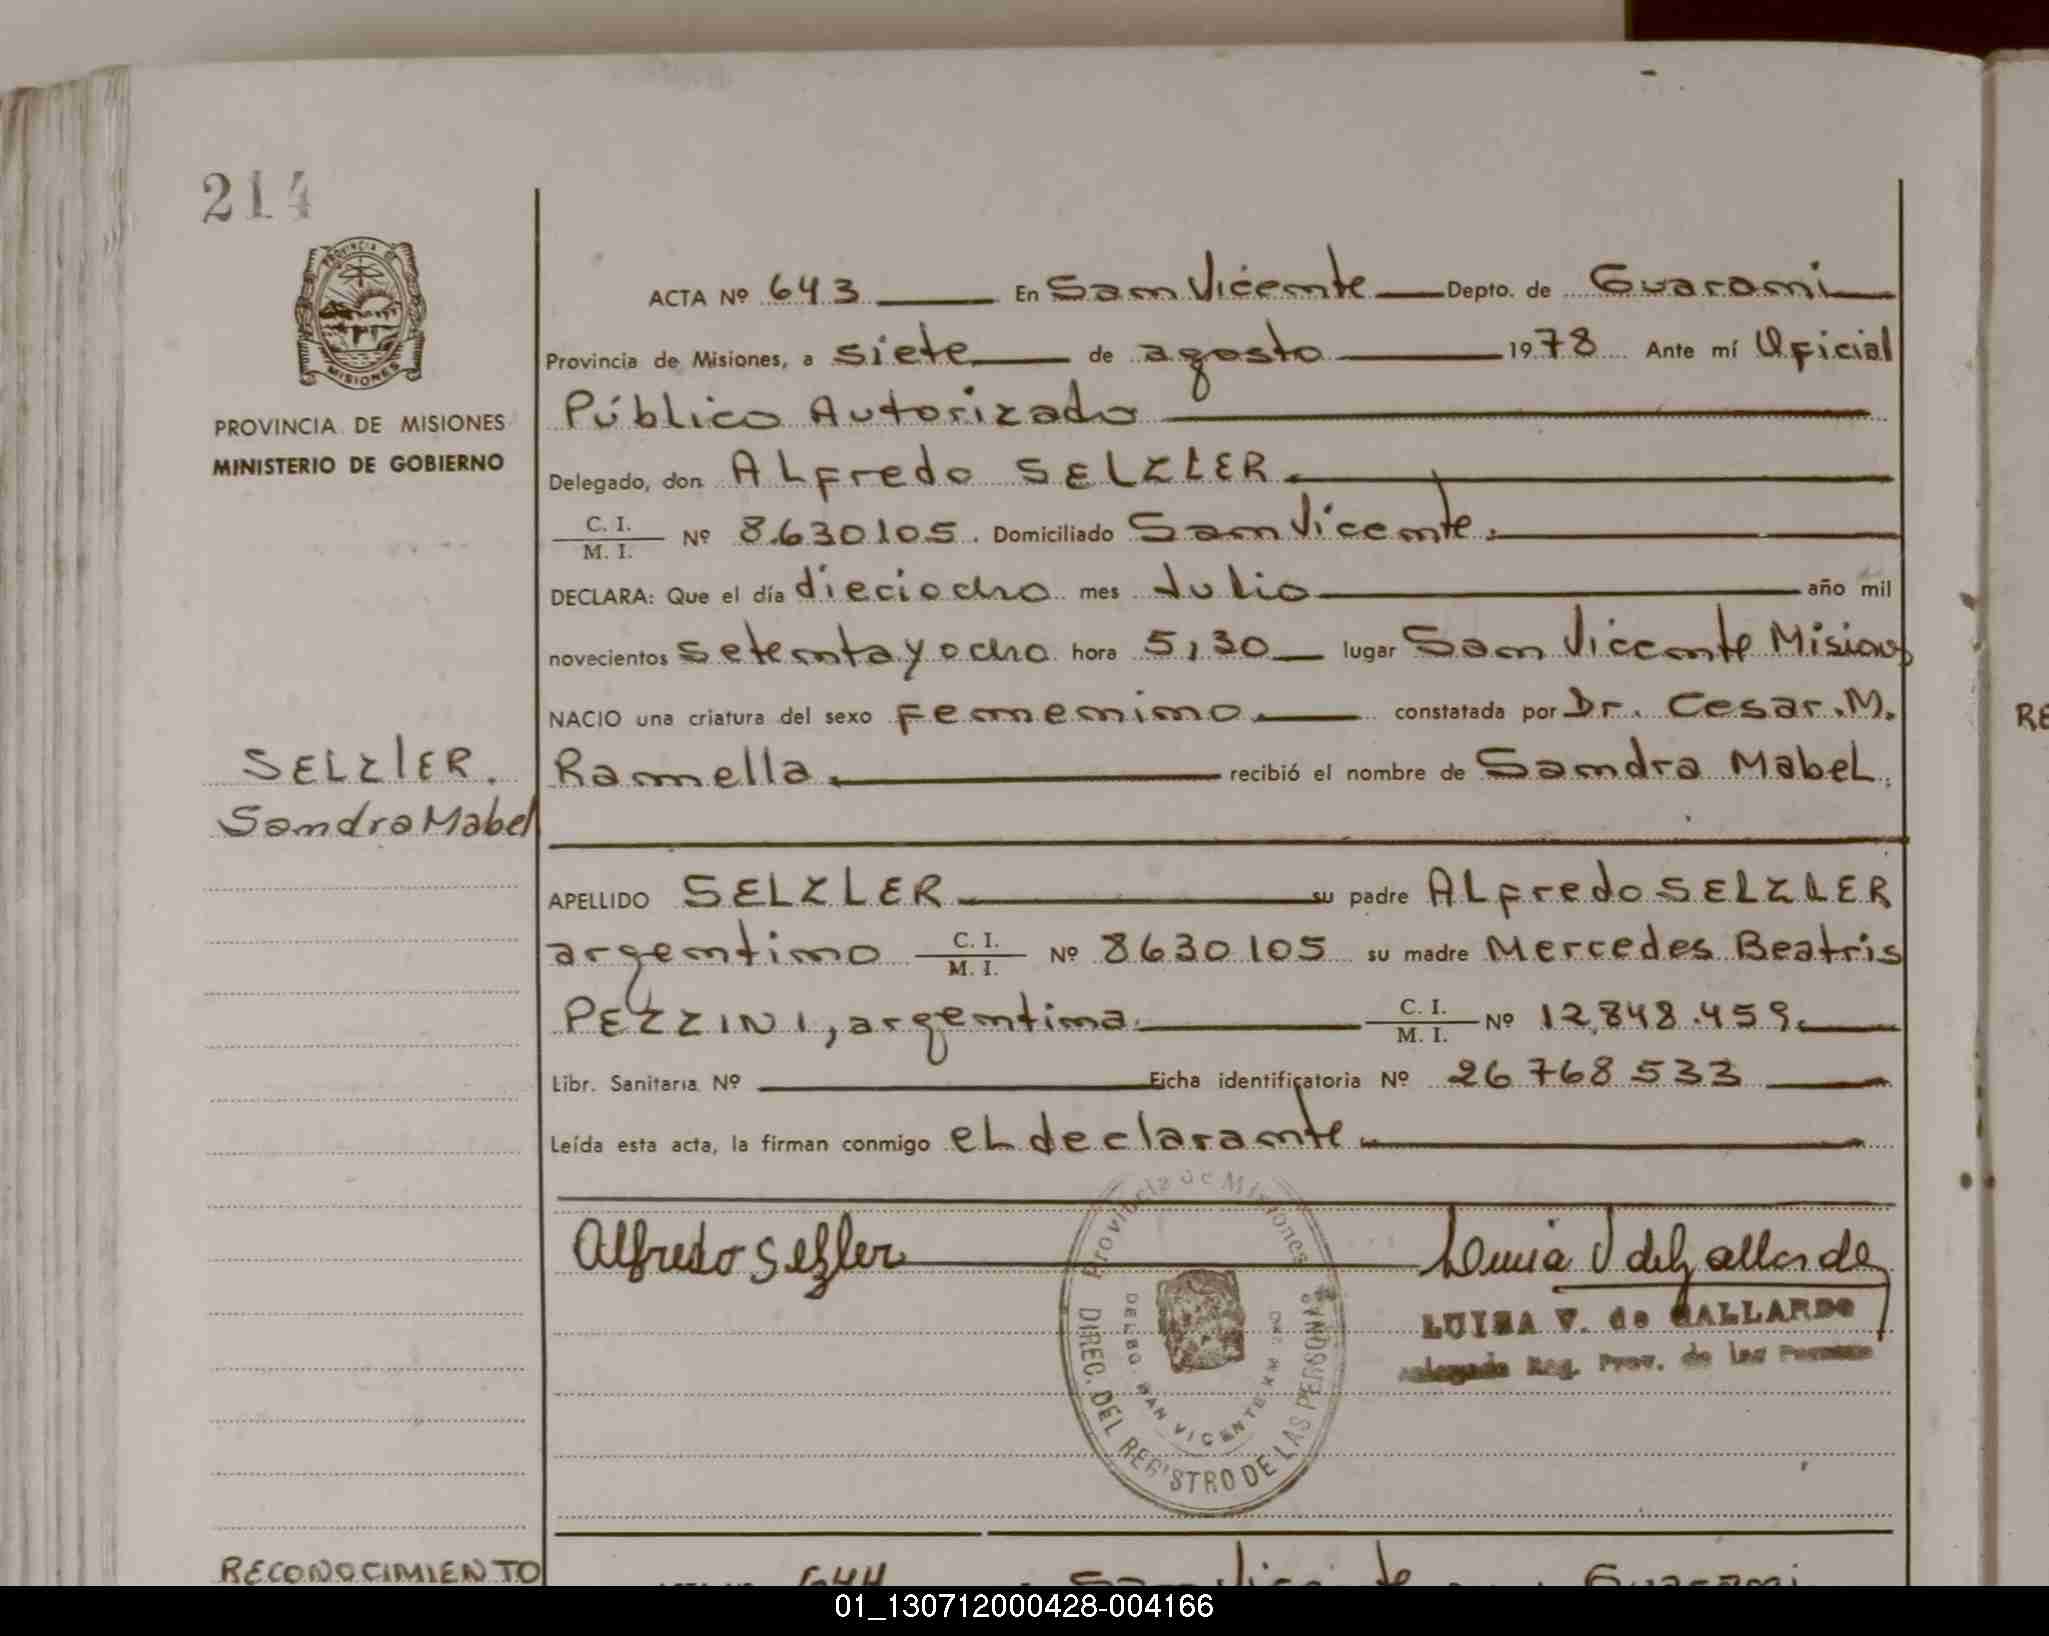 214
PROVINCIA DE MISIONES
MINISTERIO DE GOBIERNO
ACTA Nº 643 En San Vicente Depto. de Guarani
Provincia de Misiones, a siete de agosto 1978 Ante mí Oficial
Público Autorizado
Delegado, don Alfredo SELZLER
C. I. / M. I. Nº 8.630105. Domiciliado San Vicente.
DECLARA: Que el día dieciocho mes Julio año mil
novecientos setenta y ocho hora 5,30 lugar San Vicente Misiones
NACIO una criatura del sexo femenino constatada por Dr. Cesar. M.
Ramella. recibió el nombre de Sandra Mabel.
SELZLER.
Sandra Mabel
APELLIDO SELZLER su padre Alfredo SELZLER
argentino C. I. / M. I. Nº 8630105 su madre Mercedes Beatris
PEZZINI, argentina. C. I. / M. I. Nº 12.848.459.
Libr. Sanitaria Nº Ficha identificatoria Nº 26768533
Leída esta acta, la firman conmigo el declarante
Alfredo Selzler
LUISA V. de GALLARDO
Reg. Prov. de las Personas
Provincia de Misiones
DIREC. DEL REGISTRO DE LAS PERSONAS
SAN VICENTE
RECONOCIMIENTO
644 San Vicente Guarani
RE
01_130712000428-004166